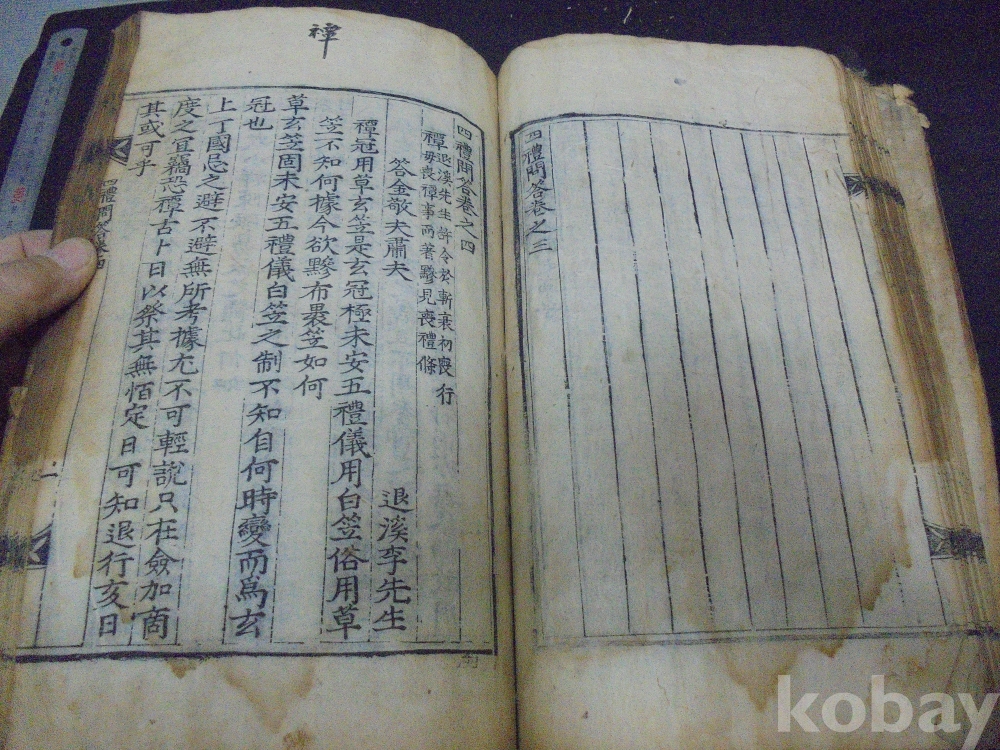 四禮問答卷之三
禫
四禮問答卷之四
禫 退溪先生許令於斬衰初喪行
母喪禫事而著黲見喪禮條
答金敬夫肅夫
退溪李先生
禫冠用草玄笠是玄冠極未安五禮儀用白笠俗用草
笠不知何據今欲黲布裹笠如何
草玄笠固未安五禮儀白笠之制不知自何時變而爲玄
冠也
上丁國忌之避不避無所考據尤不可輕說只在僉加商
度之宜竊恐禫古卜日以祭其無恒定日可知退行亥日
其或可乎
四禮問答卷四
一
kobay